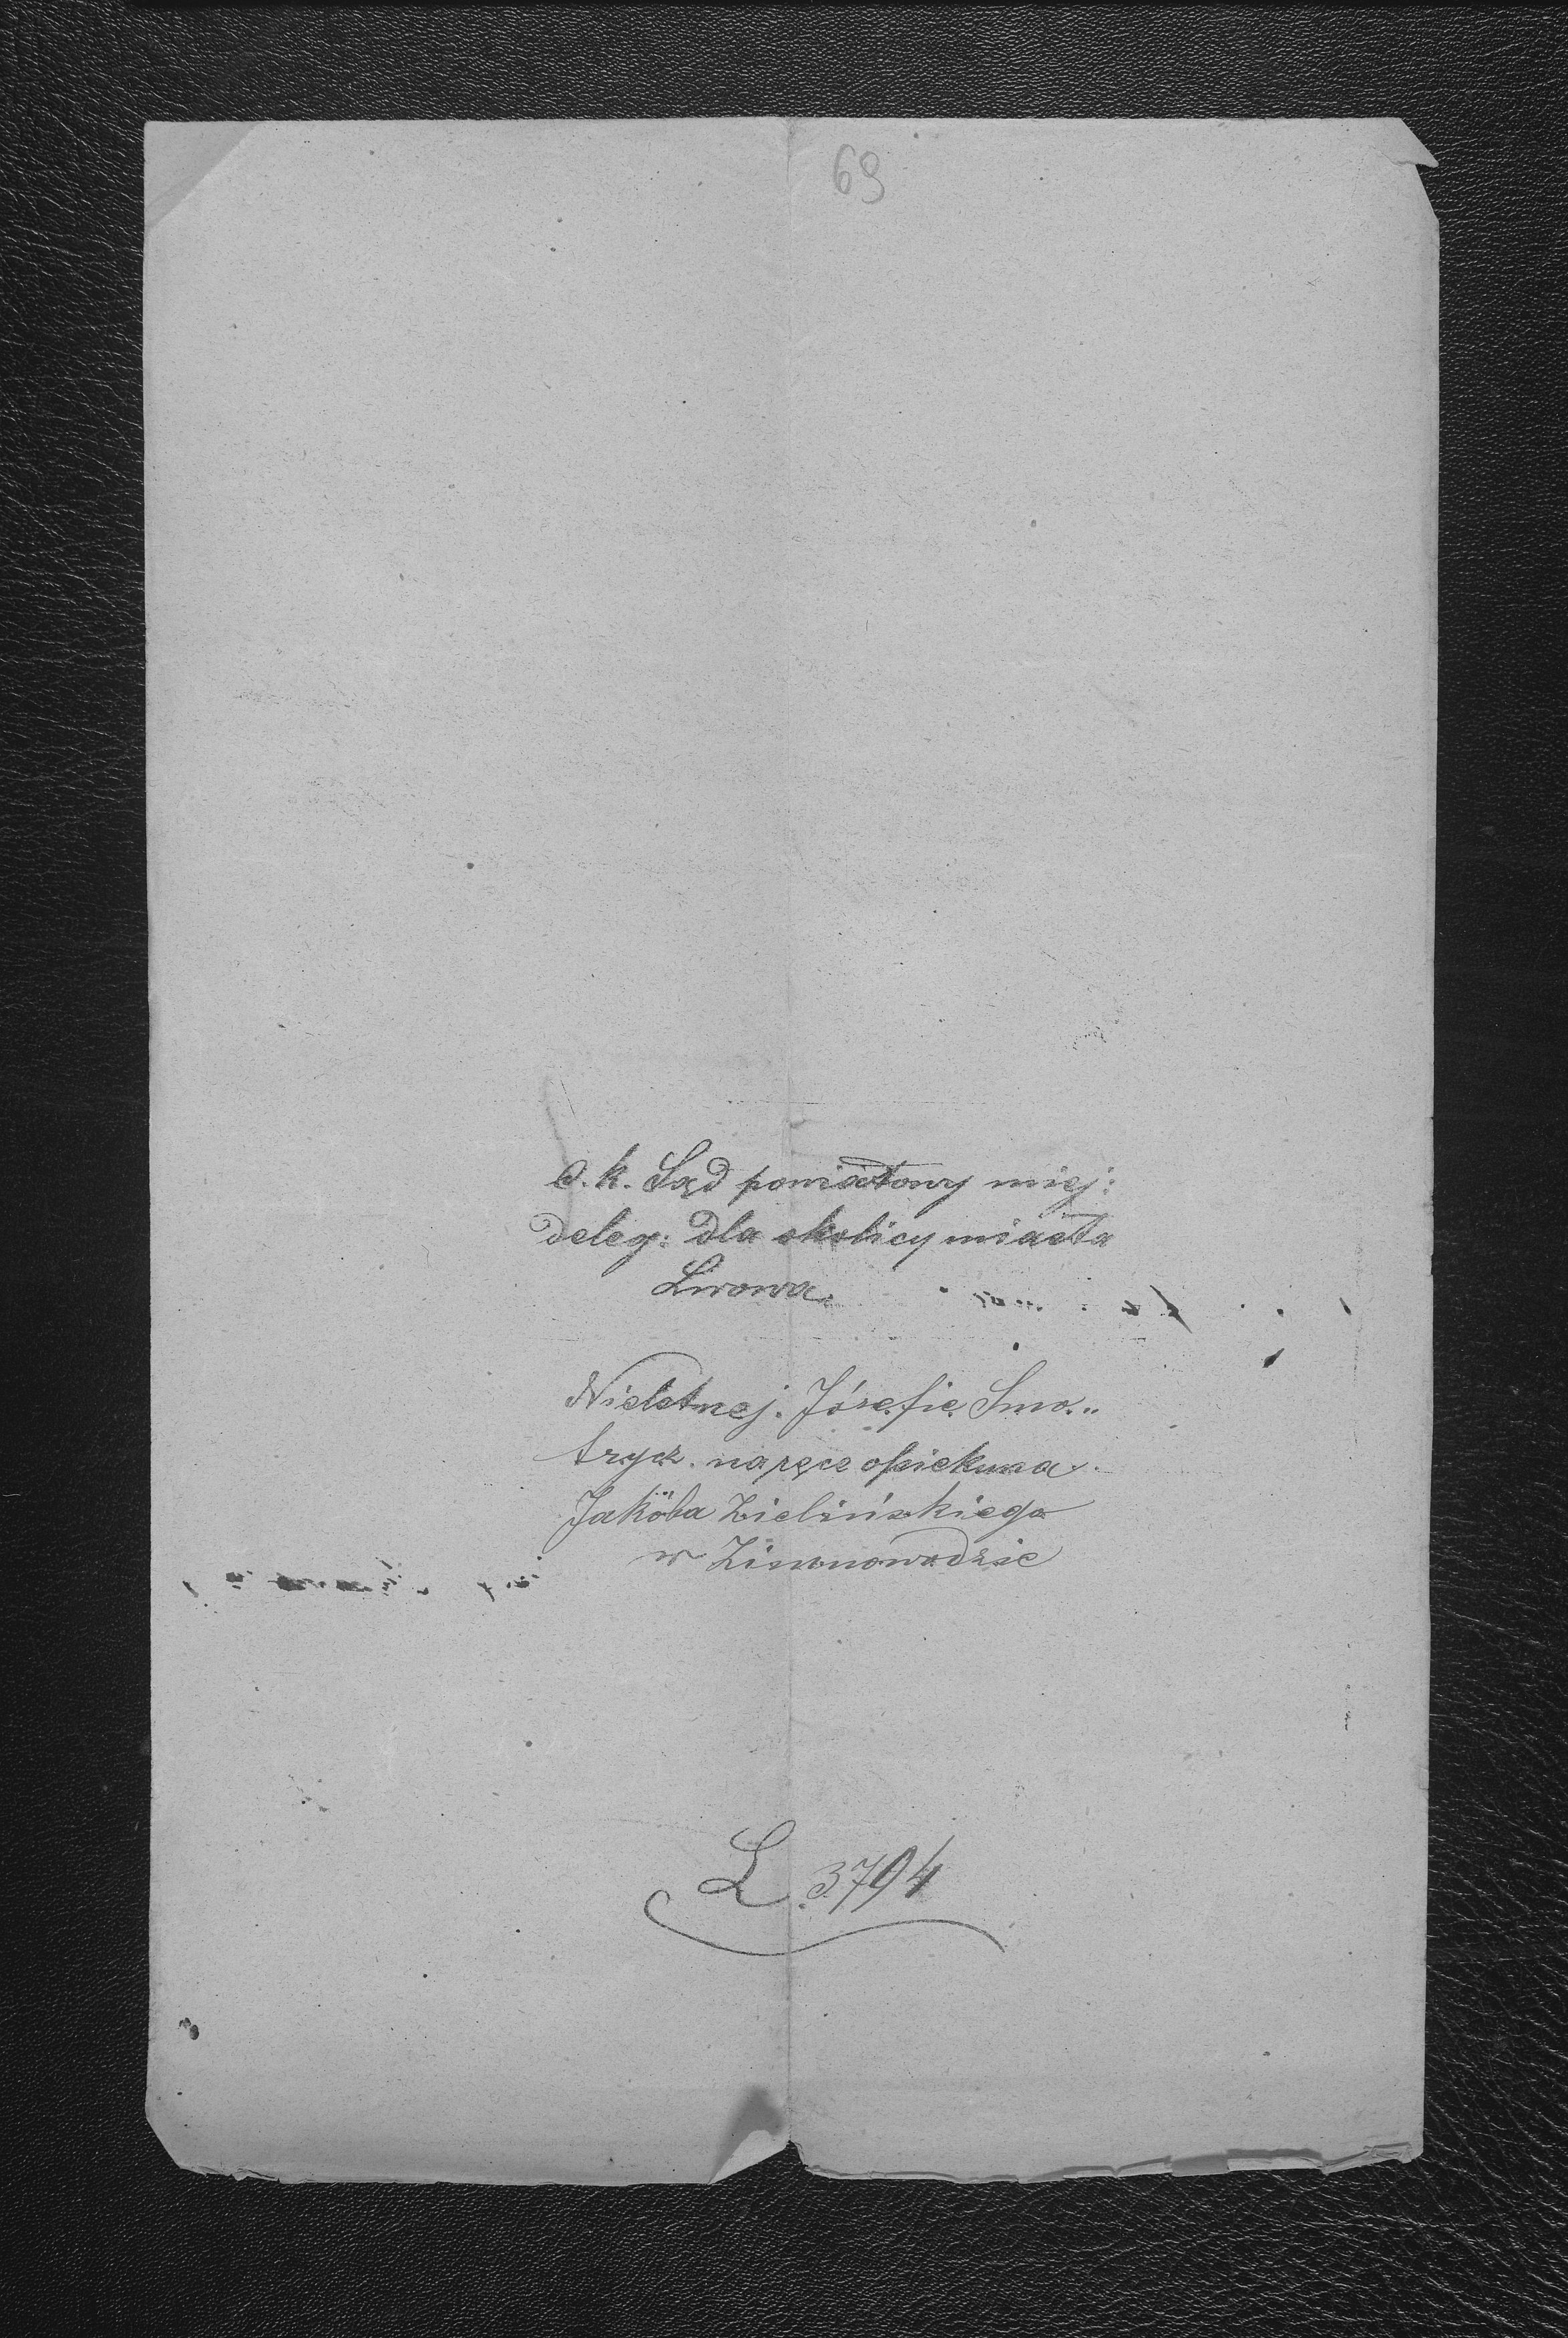 69
c. k. Sąd powiatowy miej:
deleg: dla okolicy miasta
Lwowa.
Nieletnej Józefie Smo„
trycz na ręce opiekuna
Jakóba Zielińskiego
w Zimnowodzie
L. 3794